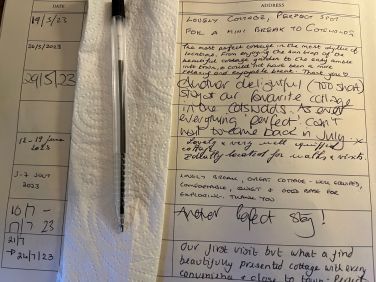 DATE
ADDRESS
19/5/23
LOVELY COTTAGE, PERFECT SPOT
FOR A MINI BREAK TO COTSWOLDS
26/5/2023
The most perfect cottage in the most idyllic of
locations. From enjoying the sun trap of the
beautiful cottage garden to the easy amble
into town, it could not have been a more
relaxing and enjoyable break. Thank you
29/5/23
Another delightful (TOO SHORT)
stay at our favourite cottage
in the cotswolds. As ever
everything 'perfect' can't
wait to come back in July :- x
12 - 19 June
2023
Lovely & very well equipped
cottage
located for walks & visits
3-7 JULY
2023
LOVELY BREAK, GREAT COTTAGE - WELL EQUIPPED,
COMFORTABLE, QUIET & GOOD BASE FOR
EXPLORING. THANK YOU
10/7 -
17/7 23
Another Perfect Stay!
21/7
→ 24/7/23
Our first visit but what a find
beautifully presented cottage with every
convenience & close to town. Perfect